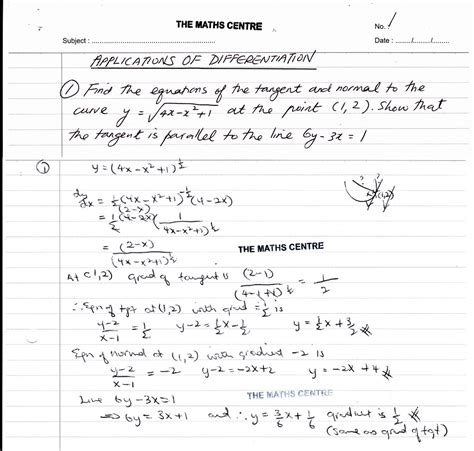 THE MATHS CENTRE
No. 1
Subject : ....................
Date : ......../......../........
APPLICATIONS OF DIFFERENTIATION
① Find the equations of the tangent and normal to the
curve y = √(4x-x²+1) at the point (1,2). Show that
the tangent is parallel to the line 6y-3x=1
① y=(4x-x²+1)^½
dy/dx = ½(4x-x²+1)^-½(4-2x)
(2-x)
= ½(4-2x)(1/(4x-x²+1)^½)
= (2-x)/(4x-x²+1)^½
THE MATHS CENTRE
At (1,2) grad of tangent is (2-1)/(4-1+1)^½ = 1/2
∴ Eqn of tgt at (1,2) with grad = ½ is
(y-2)/(x-1) = ½ y-2=½x-½ y=½x+3/2
Eqn of normal at (1,2) with gradient -2 is
(y-2)/(x-1) = -2 y-2=-2x+2 y=-2x+4
Line 6y-3x=1
THE MATHS CENTRE
⇒ 6y=3x+1 and ∴ y=3/6x+1/6 gradient is ½
(same as grad of tgt)